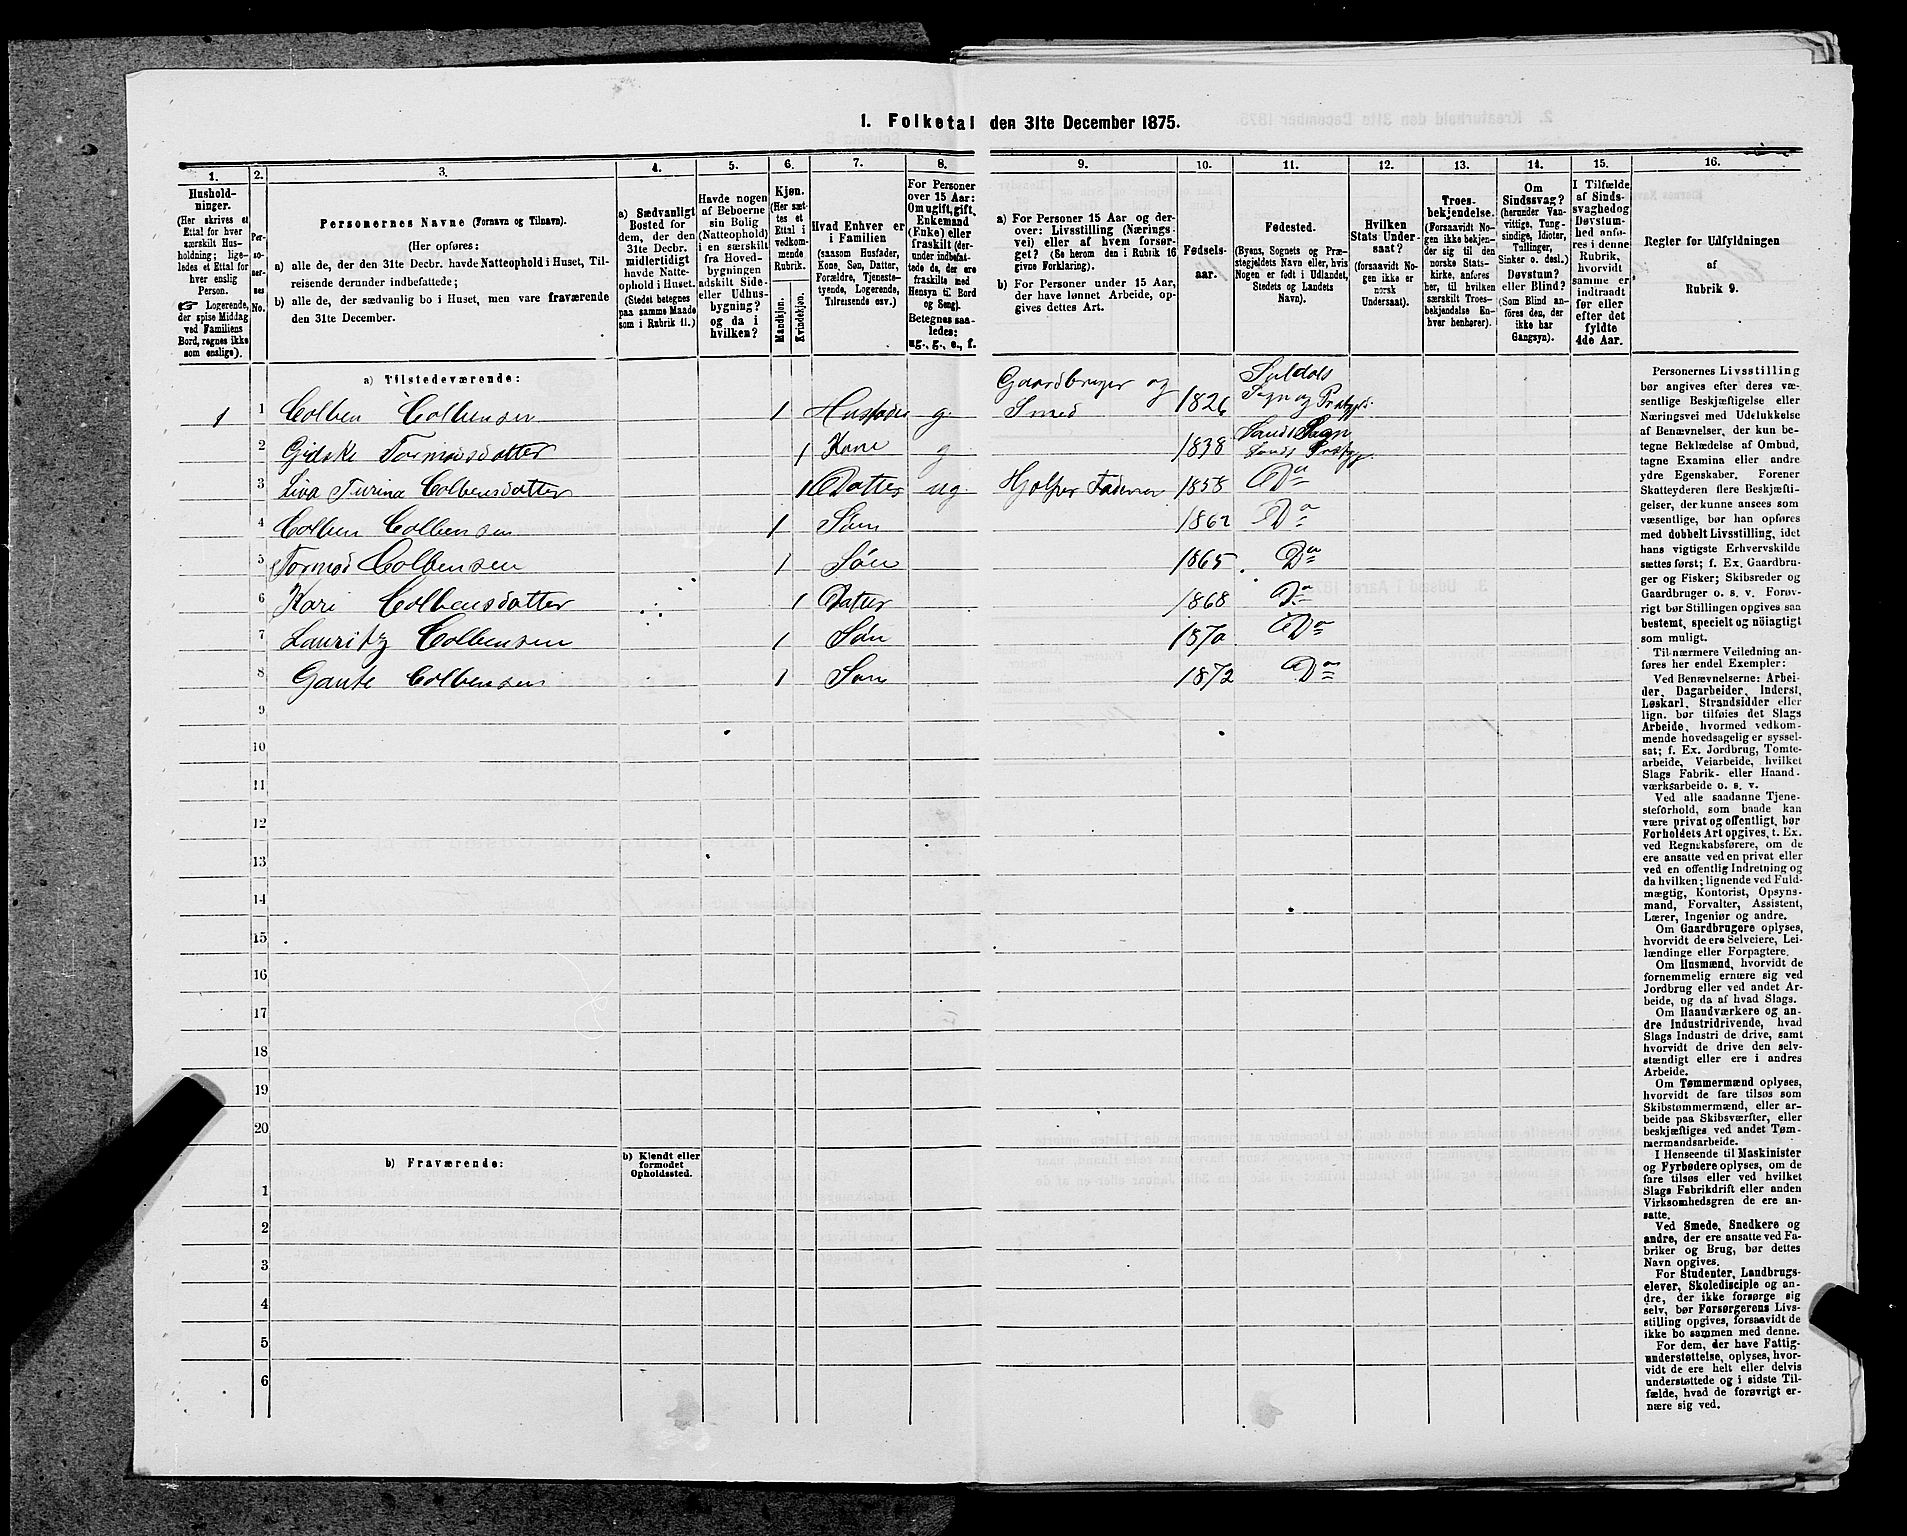 1. Folketal den 31te December 1875.
1. 2. 3. 4. 5. 6. 7. 8. 9. 10. 11. 12. 13. 14. 15. 16.
Hushold-
ninger.
(Her skrives et
Ettal for hver
særskilt Hus-
holdning; lige-
ledes et Ettal for
hver enslig
Person.
☞ Logerende,
der spise Middag
ved Familiens
Bord, regnes ikke
som enslige).
Per-
so-
ner-
nes
No.
Personernes Navne (Fornavn og Tilnavn).
(Her opføres:
a) alle de, der den 31te Decbr. havde Natteophold i Huset, Til-
reisende derunder indbefattede;
b) alle de, der sædvanlig bo i Huset, men vare fraværende
den 31te December.
a) Sædvanligt
Bosted for
dem, der den
31te Decbr.
midlertidigt
havde Natte-
ophold i Huset.
(Stedet betegnes
paa samme Maade
som i Rubrik 11.)
Havde nogen
af Beboerne
sin Bolig
(Natteophold)
i en særskilt
fra Hoved-
bygningen
adskilt Side-
eller Udhus-
bygning?
og da i
hvilken?
Kjøn.
(Her sæt-
tes et
Ettal i
vedkom-
mende
Rubrik.
Mandkjøn.
Kvindekjøn.
Hvad Enhver er
i Familien
(saasom Husfader,
Kone, Søn, Datter,
Forældre, Tjeneste-
tyende, Logerende,
Tilreisende osv.)
For Personer
over 15 Aar:
Om ugift, gift,
Enkemand
(Enke) eller
fraskilt (der-
under indbefat-
tede de, der ere
fraskilte med
Hensyn til Bord
og Seng).
Betegnes saa-
ledes:
ug., g., e., f.
a) For Personer 15 Aar og der-
over: Livsstilling (Nærings-
vei) eller af hvem forsør-
get? (Se herom den i Rubrik 16
givne Forklaring).
b) For Personer under 15 Aar,
der have lønnet Arbeide, op-
gives dettes Art.
Fødsels-
aar.
Fødested.
(Byens, Sognets og Præ-
stegjeldets Navn eller, hvis
Nogen er født i Udlandet,
Stedets og Landets
Navn).
Hvilken
Stats Under-
saat?
(forsaavidt No-
gen ikke er
norsk
Undersaat).
Troes-
bekjendelse.
(Forsaavidt No-
gen ikke bekjen-
der sig til den
norske Stats-
kirke, anføres
her, til hvilken
særskilt Troes-
bekjendelse En-
hver henhører).
Om
Sindssvag?
(herunder Van-
vittige, Tung-
sindige, Idioter,
Tullinger,
Sinker o. desl.)
Døvstum?
eller Blind?
(Som Blind an-
føres den, der
ikke har
Gangsyn).
I Tilfælde
af Sinds-
svaghed og
Døvstum-
hed anfø-
res i denne
Rubrik,
hvorvidt
samme er
indtraadt
før eller
efter det
fyldte
4de Aar.
Regler for Udfyldningen
af
Rubrik 9.
a) Tilstedeværende:
1 1 Colben Colbensen 1 Husfader g. Gaardbruger og Smed 1826 Suldals Sogn og Præstgj.
2 Gidske Tormodsdatter 1 Kone g 1838 Sands Sogn Sands Præstgj.
3 Liva Turina Colbensdatter 1 Datter ug. Hjelper Faderen 1858 Do
4 Colben Colbensen 1 Søn 1862 Do
5 Tormod Colbensen 1 Søn 1865. Do
6 Kari Colbensdatter 1 Datter 1868 Do
7 Lauritz Colbensen 1 Søn 1870. Do
8 Gaute Colbensen 1 Søn 1872 Do
9
10
11
12
13
14
15
16
17
18
19
20
b) Fraværende:
b) Kjendt eller
formodet
Opholdssted.
1
2
3
4
5
6
Personernes Livsstilling
bør angives efter deres væ-
sentlige Beskjæftigelse eller
Næringsvei med Udelukkelse
af Benævnelser, der kun be-
tegne Beklædelse af Ombud,
tagne Examina eller andre
ydre Egenskaber. Forener
Skatteyderen flere Beskjæfti-
gelser, der kunne ansees som
væsentlige, bør han opføres
med dobbelt Livsstilling, idet
hans vigtigste Erhvervskilde
sættes først; f. Ex. Gaardbru-
ger og Fisker; Skibsreder og
Gaardbruger o. s. v. Forøv-
rigt bør Stillingen opgives saa
bestemt, specielt og nöiagtigt
som muligt.
Til nærmere Veiledning an-
føres her endel Exempler:
Ved Benævnelserne: Arbei-
der, Dagarbeider, Inderst,
Løskarl, Strandsidder eller
lign. bør tilføies det Slags
Arbeide, hvormed vedkom-
mende hovedsagelig er syssel-
sat; f. Ex. Jordbrug, Tomte-
arbeide, Veiarbeide, hvilket
Slags Fabrik- eller Haand-
værksarbeide o. s. v.
Ved alle saadanne Tjene-
steforhold, som baade kan
være privat og offentligt, bør
Forholdets Art opgives, t. Ex.
ved Regnskabsførere, om de
ere ansatte ved en privat eller
ved en offentlig Indretning og
da hvilken; lignende ved Fuld-
mægtig, Kontorist, Opsyns-
mand, Forvalter, Assistent,
Lærer, Ingeniør og andre.
Om Gaardbrugere oplyses,
hvorvidt de ere Selveiere, Lei-
lændinge eller Forpagtere.
Om Husmænd, hvorvidt de
fornemmelig ernære sig ved
Jordbrug eller ved andet Ar-
beide, og da af hvad Slags.
Om Haandværkere og an-
dre Industridrivende, hvad
Slags Industri de drive, samt
hvorvidt de drive den selv-
stændigt eller ere i andres
Arbeide.
Om Tømmermænd oplyses,
hvorvidt de fare tilsøs som
Skibstømmermænd, eller ar-
beide paa Skibsværfter, eller
beskjæftiges ved andet Tøm-
mermandsarbeide.
I Henseende til Maskinister
og Fyrbødere oplyses, om de
fare tilsøs eller ved hvilket
Slags Fabrikdrift eller anden
Virksomhedsgren de ere an-
satte.
Ved Smede, Snedkere og
andre, der ere ansatte ved Fa-
briker og Brug, bør dettes
Navn opgives.
For Studenter, Landbrugs-
elever, Skoledisciple og an-
dre, der ikke forsørge sig
selv, bør Forsørgerens Livs-
stilling opgives, forsaavidt de
ikke bo sammen med denne.
For dem, der have Fattig-
understøttelse, oplyses, hvor-
vidt de ere helt eller delvis
understøttede og i sidste Til-
fælde, hvad de forøvrigt er-
nære sig ved.